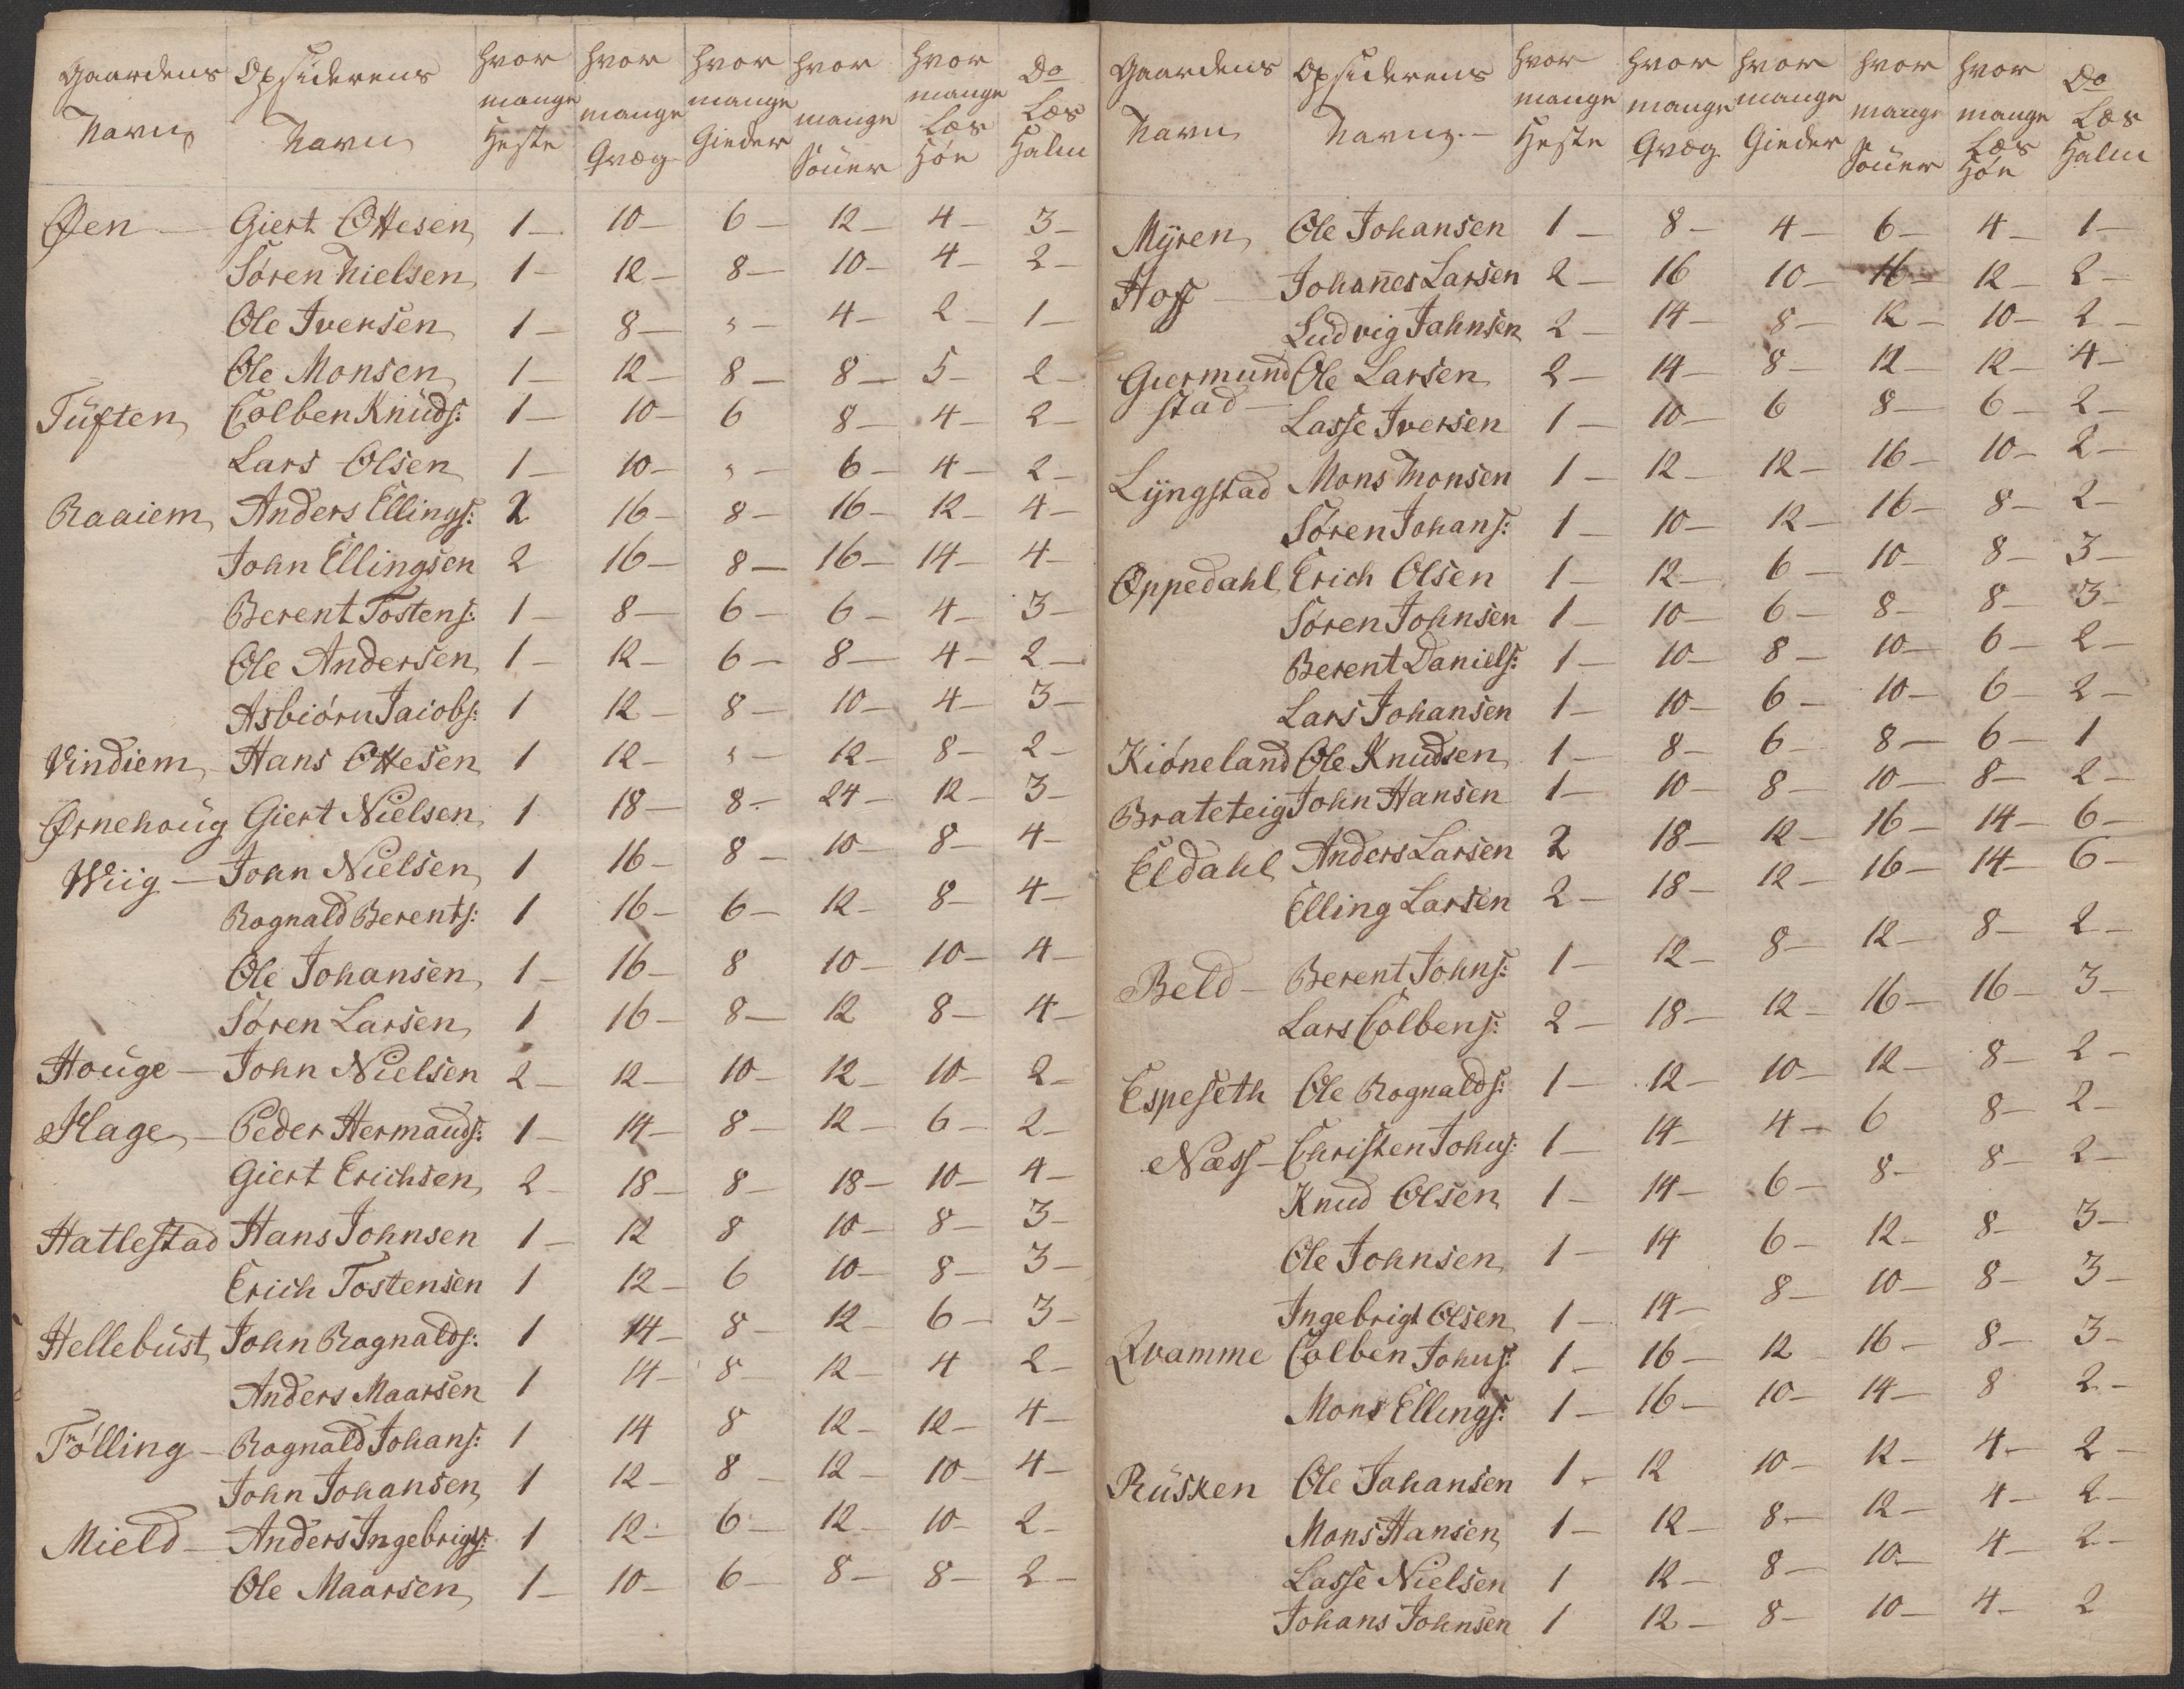 Gaardens Navn Opsiderens Navn hvor mange Heste hvor mange Qvæg hvor mange Gieder hvor mange Souer hvor mange Læs Høe Do Læs Halm
Øen — Giert Ottesen 1 — 10 — 6 — 12 — 4 — 3 —
Søren Nielsen 1 — 12 — 8 — 10 — 4 — 2 —
Ole Iversen 1 — 8 — 4 — 2 — 1 —
Ole Monsen 1 — 12 — 8 — 8 — 5 — 2 —
Tüften Colben Knüds: 1 — 10 — 6 8 — 4 — 2 —
Lars Olsen 1 — 10 — 6 — 4 — 2 —
Raaiem Anders Ellings: 2 16 — 8 — 16 — 12 — 4 —
John Ellingsen 2 16 — 8 — 16 — 14 — 4 —
Berent Tostens: 1 — 8 — 6 — 6 — 4 — 3 —
Ole Andersen 1 — 12 — 6 — 8 — 4 — 2 —
Asbiørn Jaiobs: 1 12 — 8 — 10 — 4 — 3 —
Vindiem Hans Ottesen 1 12 — 12 — 8 — 2 —
Ørnehoüg Giert Nielsen 1 18 — 8 — 24 — 12 — 3 —
Wiig — John Nielsen 1 16 — 8 — 10 — 8 — 4 —
Rognald Berents: 1 16 — 6 — 12 — 8 — 4 —
Ole Johansen 1 — 16 — 8 10 — 10 — 4 —
Søren Larsen 1 16 — 8 — 12 8 — 4 —
Houge — John Nielsen 2 — 12 — 10 — 12 — 10 — 2 —
Hage — Peder Hermands: 1 — 14 — 8 — 12 — 6 — 2 —
Giert Erichsen 2 — 18 — 8 — 18 — 10 — 4 —
Hatlestad Hans Johnsen 1 — 12 8 10 — 8 — 3 —
Erich Tostensen 1 12 — 6 10 — 8 — 3 —
Hellebüst John Rognalds: 1 14 — 8 — 12 — 6 — 3 —
Anders Maarsen 1 14 — 8 — 12 — 4 2 —
Tølling — Rognald Johans: 1 14 8 12 — 12 — 4 —
John Johansen 1 12 — 8 — 12 — 10 — 4 —
Mield — Anders Ingebrigs: 1 12 — 6 — 12 — 10 — 2 —
Ole Maarsen 1 — 10 — 6 — 8 — 8 — 2 —
Gaardens Navn Opsiderens Navn. — hvor mange Heste hvor mange Qvæg hvor mange Gieder hvor mange Souer hvor mange Læs Høe Do Læs Halm
Mÿren Ole Johansen 1 — 8 — 4 — 6 — 4 — 1 —
Hoff — Johannes Larsen 2 — 16 10 — 16 — 12 — 2 —
Ludvig Jahnsen 2 — 14 — 8 — 12 — 10 — 2 —
Giermundstad — Ole Larsen 2 — 14 — 8 — 12 — 12 — 4 —
Lasse Iversen 1 — 10 — 6 8 — 6 — 2 —
Lÿngstad Mons Monsen 1 — 12 — 12 — 16 — 10 — 2 —
Søren Johans: 1 — 10 — 12 — 16 — 8 — 2 —
Oppedahl Erich Olsen 1 — 12 — 6 — 10 — 8 — 3 —
Søren Johnsen 1 — 10 — 6 — 8 — 8 — 3 —
Berent Daniels: 1 — 10 — 8 — 10 — 6 — 2 —
Lars Johansen 1 — 10 — 6 — 10 — 6 — 2 —
Kiøneland Ole Knudsen 1 — 8 — 6 — 8 — 6 — 1
Brateteig John Hansen 1 — 10 — 8 — 10 — 8 — 2 —
Eldahl Anders Larsen 2 18 — 12 — 16 — 14 — 6 —
Elling Larsen 2 — 18 — 12 — 16 — 14 — 6 —
Beld — Berent Johns: 1 — 12 — 8 — 12 — 8 — 2 —
Lars Colbens: 2 — 18 — 12 — 16 — 16 — 3 —
Espeseth Ole Rognalds: 1 — 12 — 10 — 12 — 8 — 2 —
Næss — Christen Johns: 1 — 14 — 4 — 6 8 — 2 —
Knud Olsen 1 — 14 — 6 — 8 — 8 — 2 —
Ole Johnsen 1 — 14 6 — 12 — 8 — 3 —
Ingebrigt Olsen 1 — 14 — 8 — 10 — 8 — 3 —
Qvamme Colben Johns: 1 — 16 — 12 16 — 8 — 3 —
Mons Ellings: 1 — 16 — 10 — 14 — 8 2 —
Rüsken Ole Johansen 1 — 12 10 — 12 — 4 — 2 —
Mons Hansen 1 — 12 — 8 — 12 — 4 — 2 —
Lasse Nielsen 1 12 — 8 — 10 — 4 — 2 —
Johans Johnsen 1 12 — 8 — 10 — 4 — 2